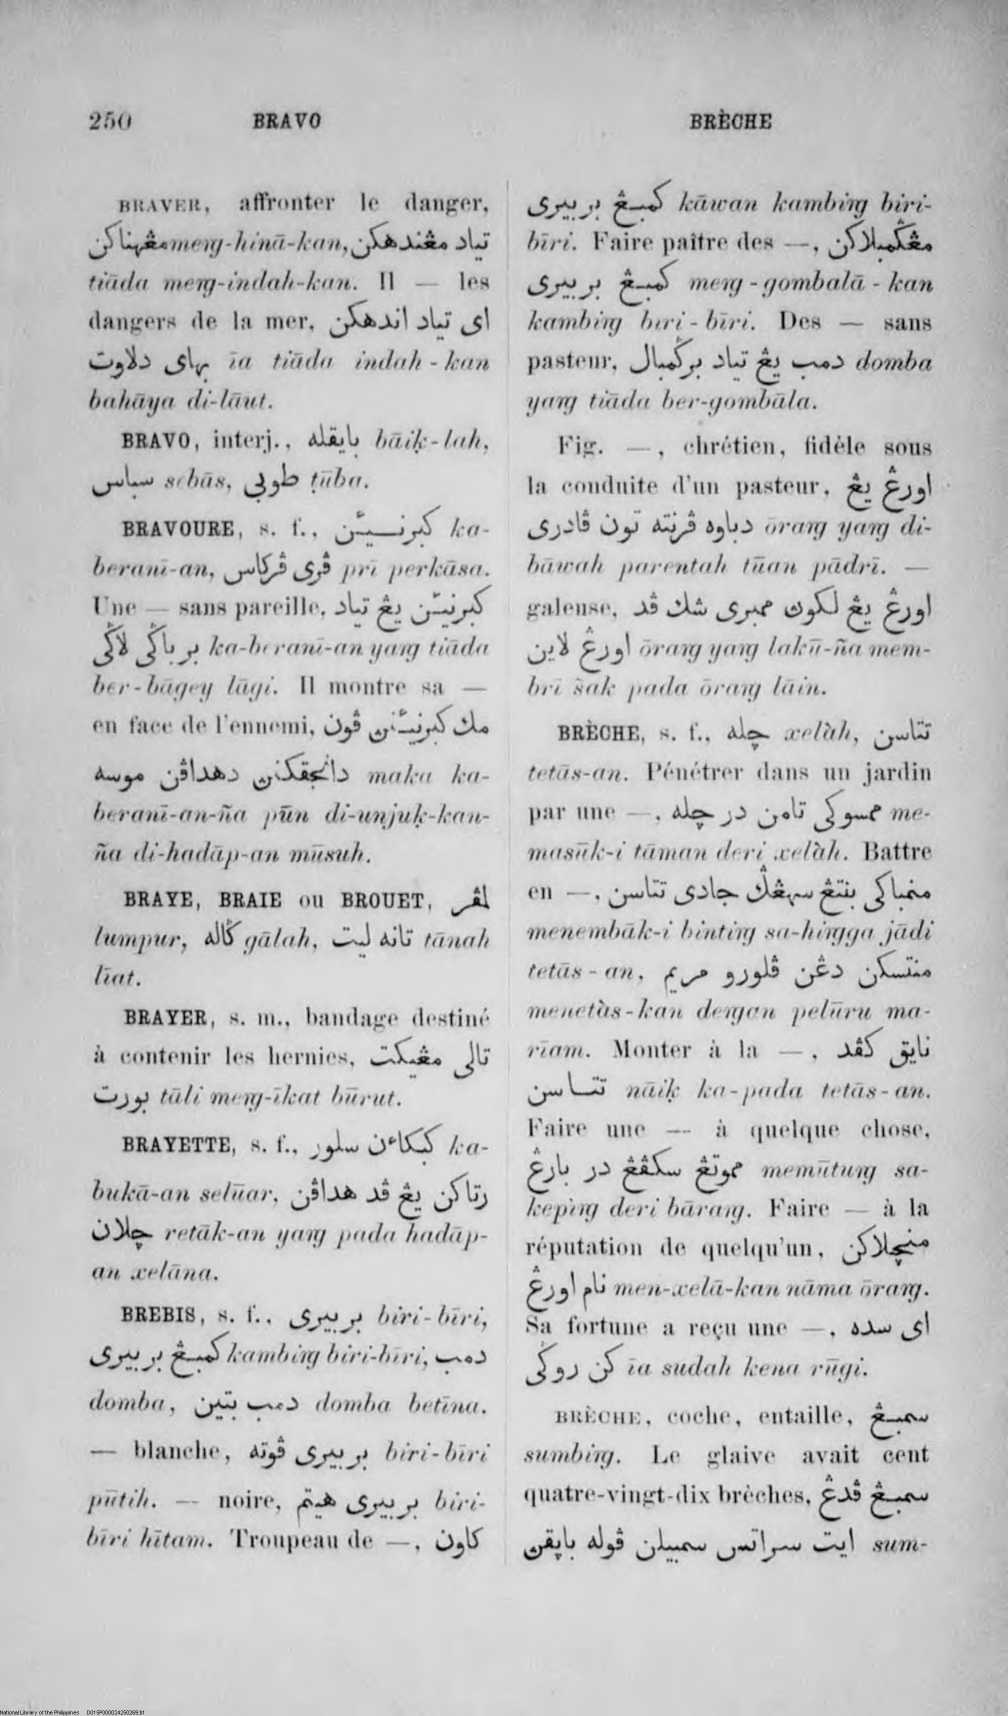 250 BRAVO BRÈCHE
BRAVER, affronter le danger,
مڠهيناكن meng-hinā-kan, تياد مڠندهكن
tiāda meng-indah-kan. Il — les
dangers de la mer, اى تياد اندهكن
بهاى دلاوت īa tiāda indah-kan
bahāya di-lāut.
BRAVO, interj., بايقله bāiḳ-lah,
سباس sebās, طوبي ṭūba.
BRAVOURE, s. f., كبرنيئن ka-
beranī-an, ڤرى ڤركاس prī perkāsa.
Une — sans pareille, كبرنيئن يڠ تياد
برباݢى لاݢى ka-beranī-an yang tiāda
ber-bāgey lāgi. Il montre sa —
en face de l'ennemi, مك كبرنيئنڽ ڤون
دانجقكنڽ دهداڤن موسه maka ka-
beranī-an-ña pūn di-unjuḳ-kan-
ña di-hadāp-an mūsuh.
BRAYE, BRAIE ou BROUET, لمڤر
lumpur, ݢاله gālah, تانه ليت tānah
līat.
BRAYER, s. m., bandage destiné
à contenir les hernies, تالى مڠيكت
بورت tāli meng-īkat būrut.
BRAYETTE, s. f., كبكاءن سلور ka-
bukā-an selūar, رتاكن يڠ ڤد هداڤن
چلان retāk-an yang pada hadāp-
an xelāna.
BREBIS, s. f., بربيرى biri-bīri,
كمبڠ بربيرى kambing biri-bīri, دمب
domba, دمب بتين domba betīna.
— blanche, بربيرى ڤوته biri-bīri
pūtih. — noire, بربيرى هيتم biri-
bīri hītam. Troupeau de —, كاون
كمبڠ بربيرى kāwan kambing biri-
bīri. Faire paître des —, مڠݢمبلاكن
كمبڠ بربيرى meng-gombalā-kan
kambing biri-bīri. Des — sans
pasteur, دمب يڠ تياد برݢمبال domba
yang tiāda ber-gombāla.
Fig. —, chrétien, fidèle sous
la conduite d'un pasteur, اورڠ يڠ
دباوه ڤرنته تون ڤادرى ōrang yang di-
bāwah parentah tūan pādrī. —
galeuse, اورڠ يڠ لكوڽ ممبرى شك ڤد
اورڠ لاين ōrang yang lakū-ña mem-
brī šak pada ōrang lāin.
BRÈCHE, s. f., چله xelàh, تتاسن
tetās-an. Pénétrer dans un jardin
par une —, ممسوكى تامن در چله me-
masūk-i tāman deri xelàh. Battre
en —, منمباكى بنتڠ سهڠݢ جادى تتاسن
menembāk-i binting sa-hingga jādi
tetās-an, منتسكن دڠن ڤلورو مريم
menetàs-kan dengan pelūru ma-
rīam. Monter à la —, نايق كڤد
تتاسن nāiḳ ka-pada tetās-an.
Faire une — à quelque chose,
مموتڠ سكڤڠ در بارڠ memūtung sa-
keping deri bārang. Faire — à la
réputation de quelqu'un, منچلاكن
نام اورڠ men-xelā-kan nāma ōrang.
Sa fortune a reçu une —, اى سده
كن روݢى īa sudah kena rūgi.
BRÈCHE, coche, entaille, سمبڠ
sumbing. Le glaive avait cent
quatre-vingt-dix brèches, سمبڠ ڤدڠ
ايت سراتس سمبيلن ڤوله باڽقڽ sum-
National Library of the Philippines